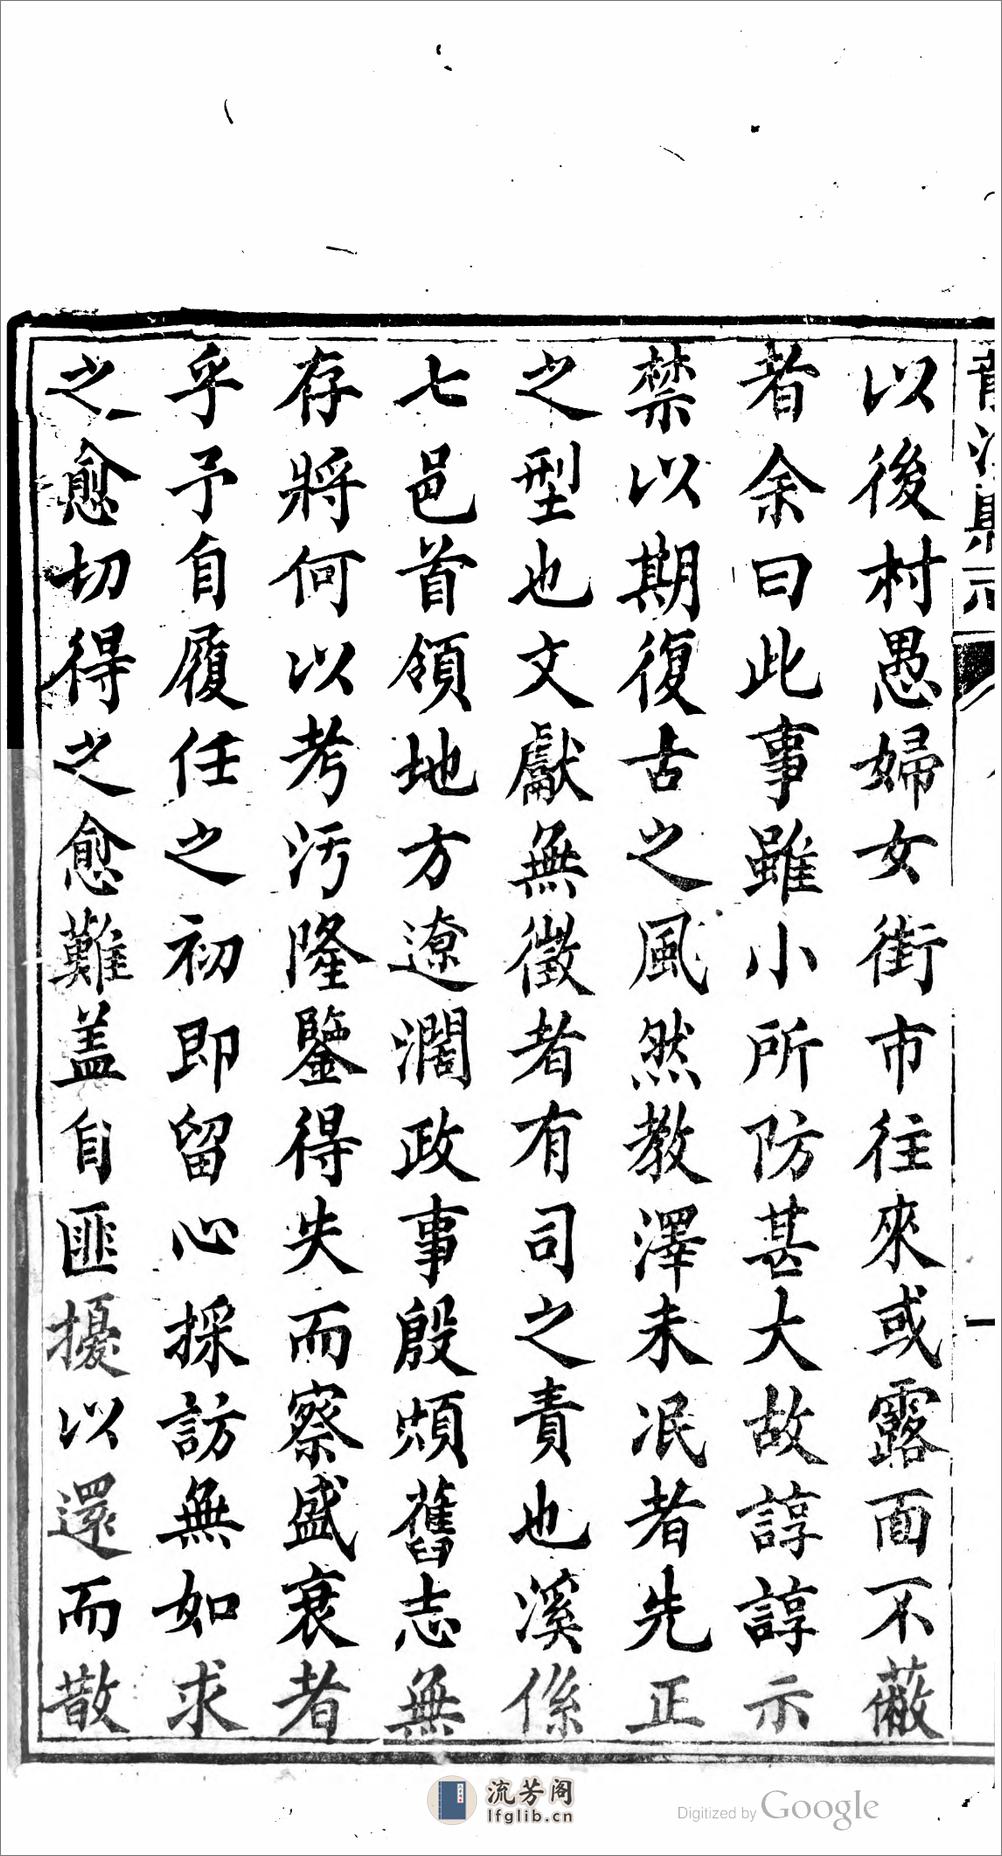 以後村愚婦女街市往來或露面不蔽
者余曰此事雖小所防甚大故諄諄示
禁以期復古之風然教澤未泯者先正
之型也文獻無徵者有司之責也溪係
七邑首領地方遼濶政事殷煩舊志無
存將何以考汚隆鑒得失而察盛衰者
乎予自履任之初即留心採訪無如求
之愈切得之愈難蓋自匪擾以還而散
流芳阁
lfglib.cn
Digitized by Google